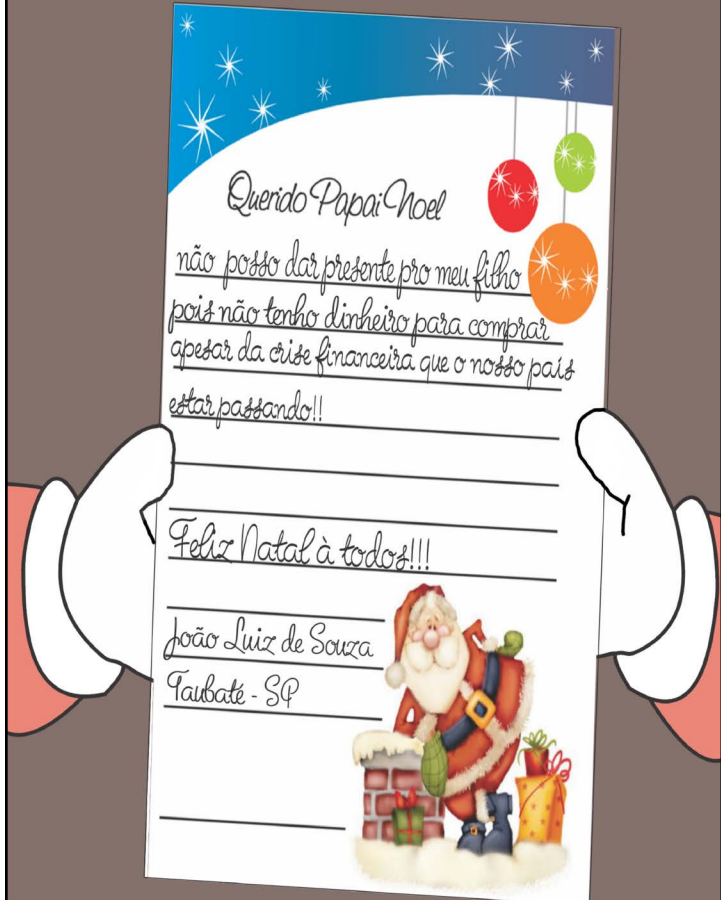 Querido Papai Noel
não posso dar presente pro meu filho
pois não tenho dinheiro para comprar
apesar da crise financeira que o nosso país
estar passando!!
Feliz Natal à todos!!!
João Luiz de Souza
Taubaté - SP